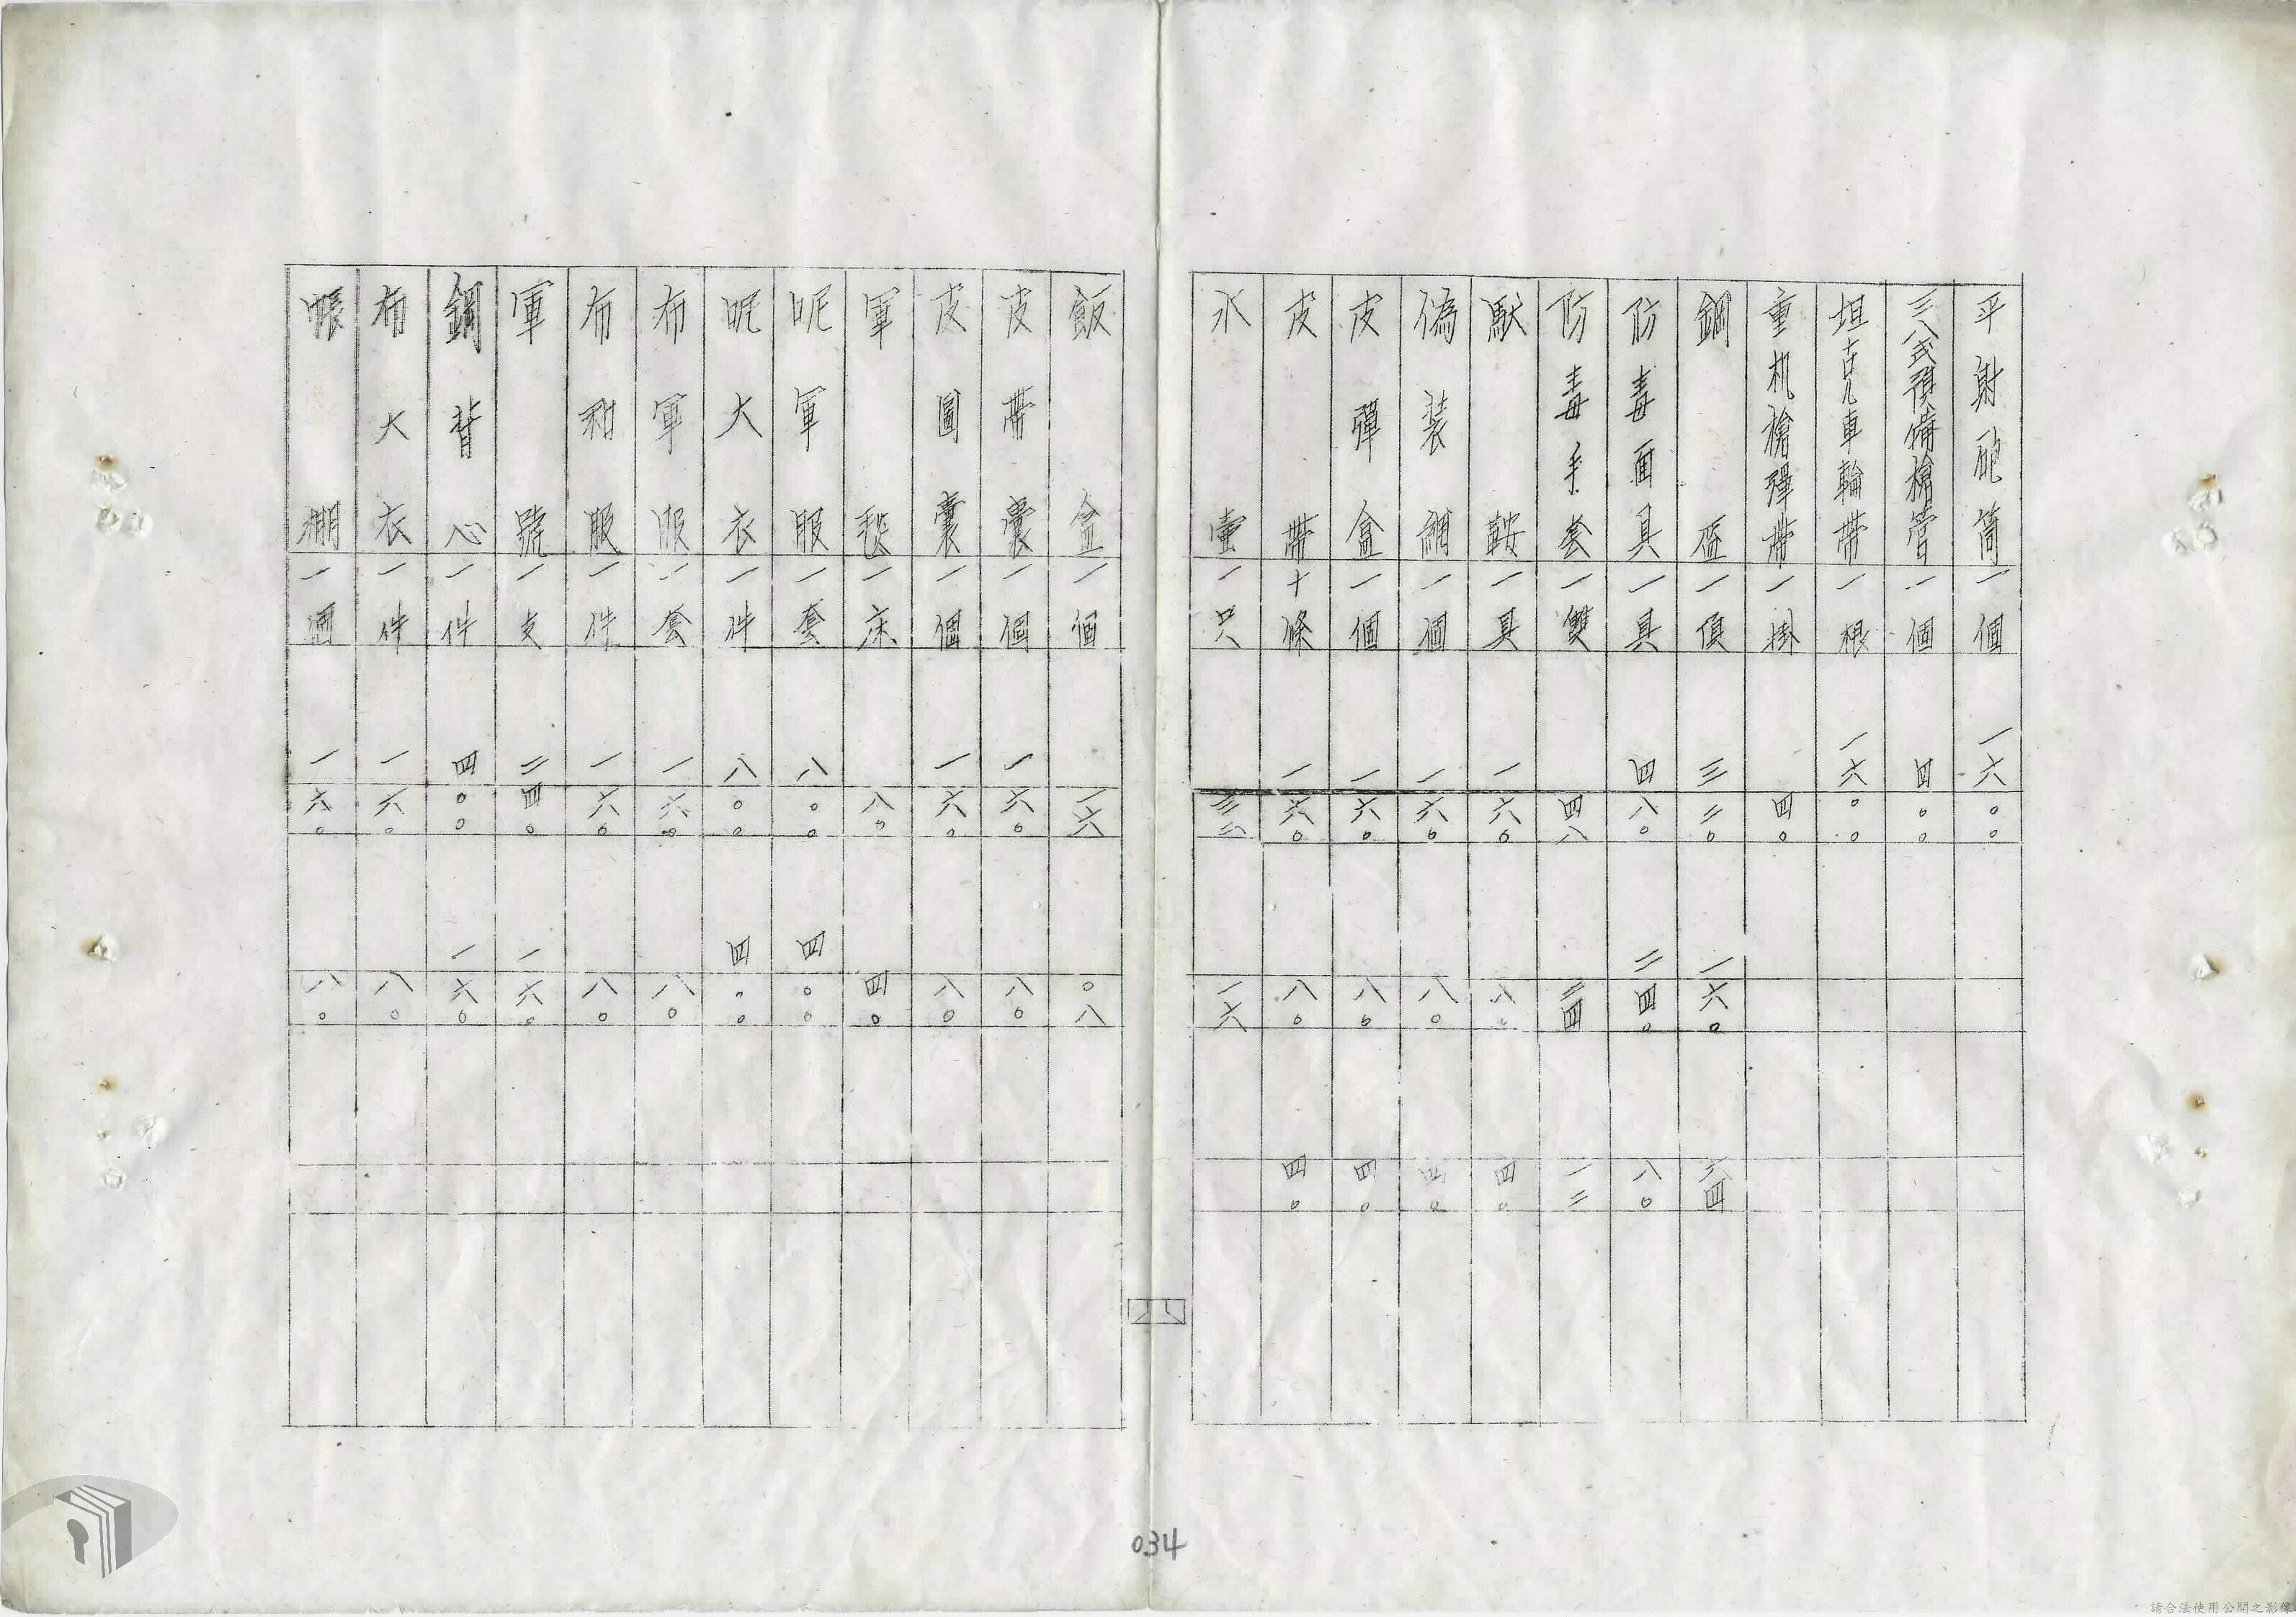 平射砲筒 一個 一六〇〇
三八式預備槍管 一個 四〇〇
坦克車輪帶 一根 一六〇〇
重机槍彈帶 一掛 四〇
鋼盔 一頂 三二〇 一六〇 六四
防毒面具 一具 四八〇 二四〇 八〇
防毒手套 一雙 四八 二四 一二
馱鞍 一具 一六〇 八〇 四〇
偽裝網 一個 一六〇 八〇 四〇
皮彈盒 一個 一六〇 八〇 四〇
皮帶 十條 一六〇 八〇 四〇
水壺 一只 三二 一六
飯盒 一個 一六 〇八
皮帶囊 一個 一六〇 八〇
皮圖囊 一個 一六〇 八〇
軍毯 一床 八〇 四〇
呢軍服 一套 八〇〇 四〇〇
呢大衣 一件 八〇〇 四〇〇
布軍服 一套 一六〇 八〇
布和服 一件 一六〇 八〇
軍號 一支 二四〇 一六〇
鋼背心 一件 四〇〇 一六〇
布大衣 一件 一六〇 八〇
帳棚 一個 一六〇 八〇
034
請合法使用公開之影像